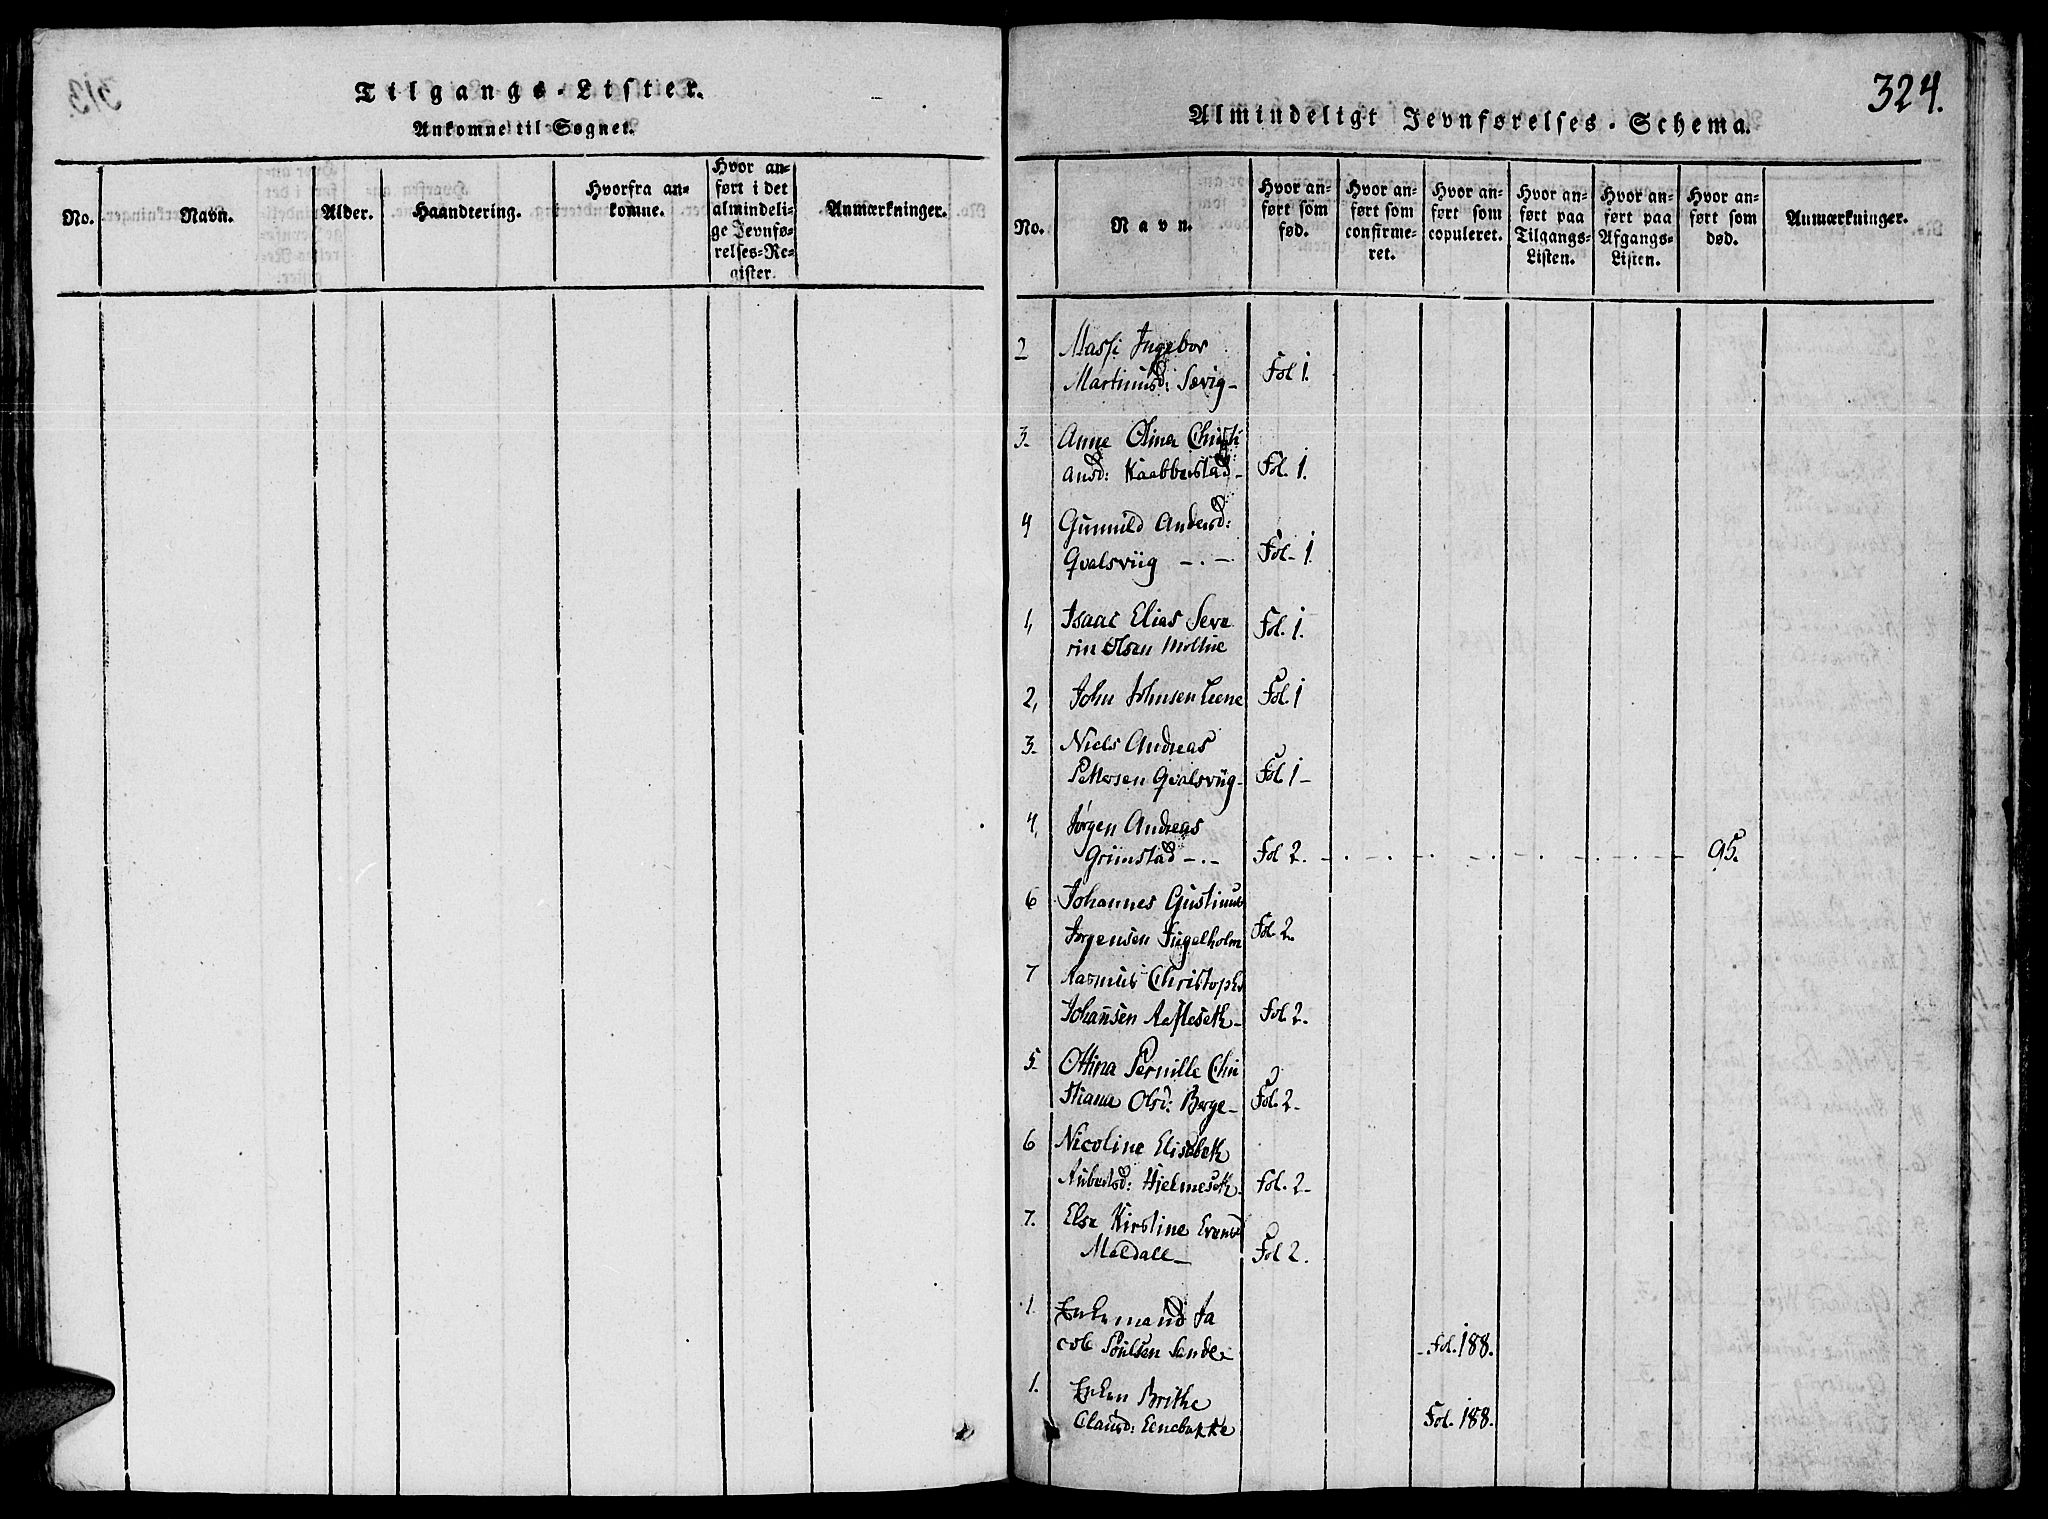 Tilgangs-Lister.
Ankomne til Sognet.
No.
Navn.
Alder.
Haandtering.
Hvorfra an-
komne.
Hvor an-
ført i det
almindeli-
ge Jevnfø-
relses-Re-
gister.
Anmærkninger.
324.
Almindeligt Jevnførelses-Schema.
No.
Navn.
Hvor an-
ført som
fød.
Hvor an-
ført som
confirme-
ret.
Hvor an-
ført som
copuleret.
Hvor an-
ført paa
Tilgangs-
Listen.
Hvor an-
ført paa
Afgangs-
Listen.
Hvor an-
ført som
død.
Anmærkninger.
2 Massi Ingebor
Martinusd: Sævig- Fol 1.
3. Anne Olina Christi
ansd: Kaabberstad- Fol. 1.
4 Gunnild Andersd:
Qvalsviig -.- Fol- 1.
1, Isaac Elias Seve
rin Olsen Moltue Fol. 1.
2, John Johnsen Leene Fol. 1
3. Niels Andreas
Pettersen Qvalsviig- Fol. 1-
4, Jørgen Andreas
Grimstad -.- Fol 2. 95.
6 Johannes Gustinus
Jørgensen Fugelholm Fol. 2.
7 Rasmus Christopher
Johansen Aafleseth- Fol. 2.
5. Ottina Pernille Chri
stiana Olsd: Berge- Fol. 2-
6 Nicoline Elisabeth
Hjelmeseth. Fol. 2-
7. Else Kirstine
Meldall- Fol 2.
1. Enkemand Ja
cob Poulsen Sande- Fol. 188.
1. Enken Brithe
Clausd: Eenebakke Fol. 188.